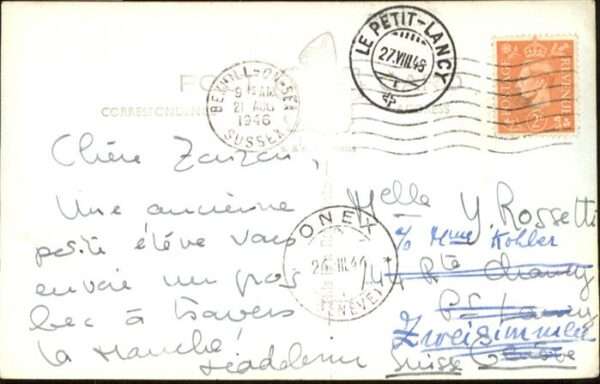 BEXHILL-ON-SEA
9 15 AM
21 AUG
1946
SUSSEX
LE PETIT-LANCY
27.VIII.46
POSTAGE
REVENUE
CORRESPONDENCE
ADDRESS
Chère Zaizai,
Une ancienne
petite élève vous
envoie un gros
bec à travers
la Manche!
ONEX
(GENÈVE)
Melle Y. Rossetti
c/o Mme Kohler
44 Rte Chancy
Pt Lancy
Zweisimmen
Suisse